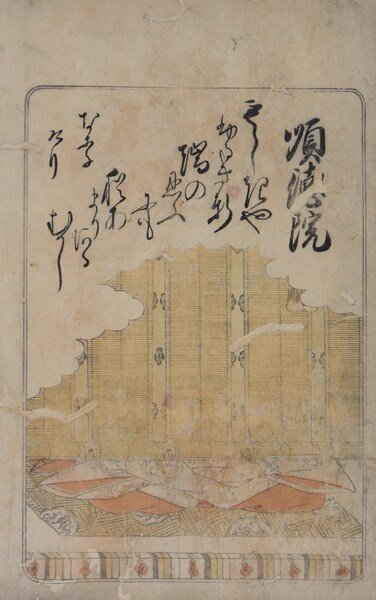 順徳院
もゝしきや
ふるき軒
端の
忍ふ
にも
猶あ
まりある
むかし
なり
けり